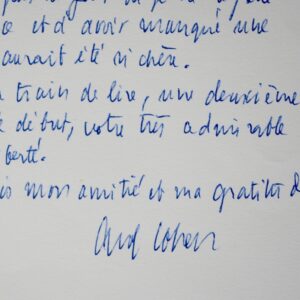 o et d'avoir manqué une
aurait été si chère.
train de lire, une deuxième
début, votre très admirable
berté.
mon amitié et ma gratitude
Cohen